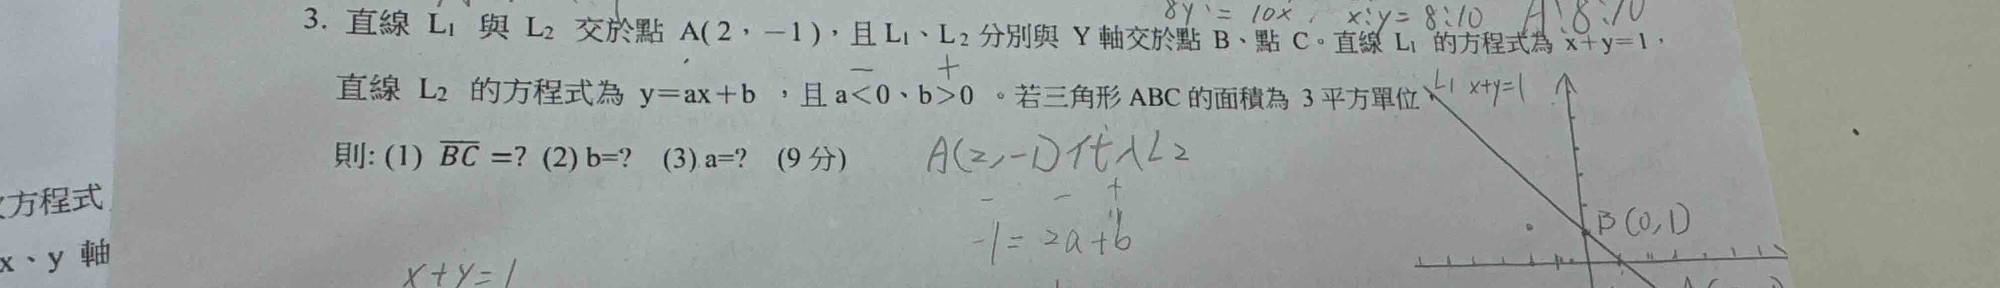 8y = 10x , x:y = 8:10 A:8:10
3. 直線 L₁ 與 L₂ 交於點 A(2,-1),且 L₁、L₂ 分別與 Y 軸交於點 B、點 C。直線 L₁ 的方程式為 x+y=1,
- +
直線 L₂ 的方程式為 y=ax+b ,且 a<0、b>0 。若三角形 ABC 的面積為 3 平方單位
L1 x+y=1
則: (1) BC =? (2) b=? (3) a=? (9 分)
A(2,-1)代入L2
- - +
-1=2a+b
B(0,1)
方程式
x、y 軸
x+y=1